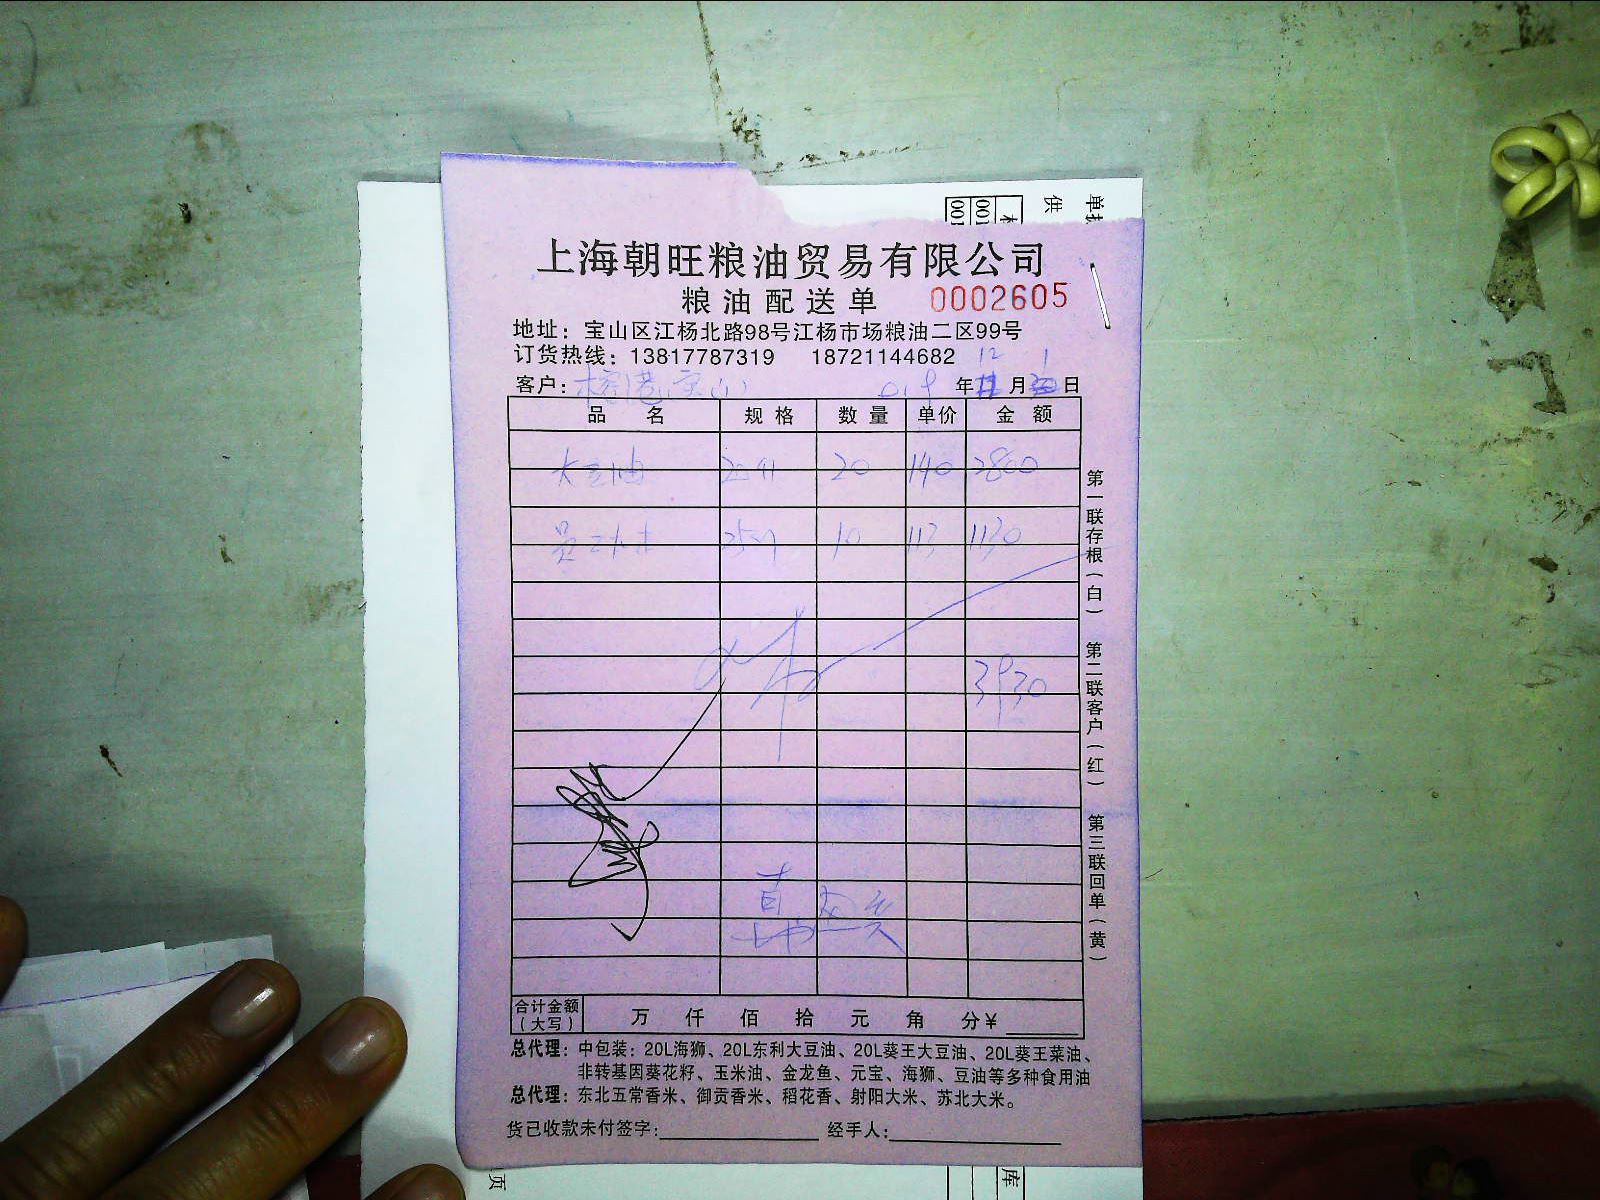 上海朝旺粮油贸易有限公司
粮油配送单 0002605
地址：宝山区江杨北路98号江杨市场粮油二区99号
订货热线：13817787319 18721144682
12 1
客户： 年 月 日
品 名 规 格 数 量 单价 金 额
大豆油 20 140 2800
10 113 1130
3930
第一联存根（白） 第二联客户（红） 第三联回单（黄）
合计金额（大写） 万 仟 佰 拾 元 角 分￥
总代理：中包装：20L海狮、20L东利大豆油、20L葵王大豆油、20L葵王菜油、
非转基因葵花籽、玉米油、金龙鱼、元宝、海狮、豆油等多种食用油
总代理：东北五常香米、御贡香米、稻花香、射阳大米、苏北大米。
货已收款未付签字： 经手人：
供
001
001
库
页